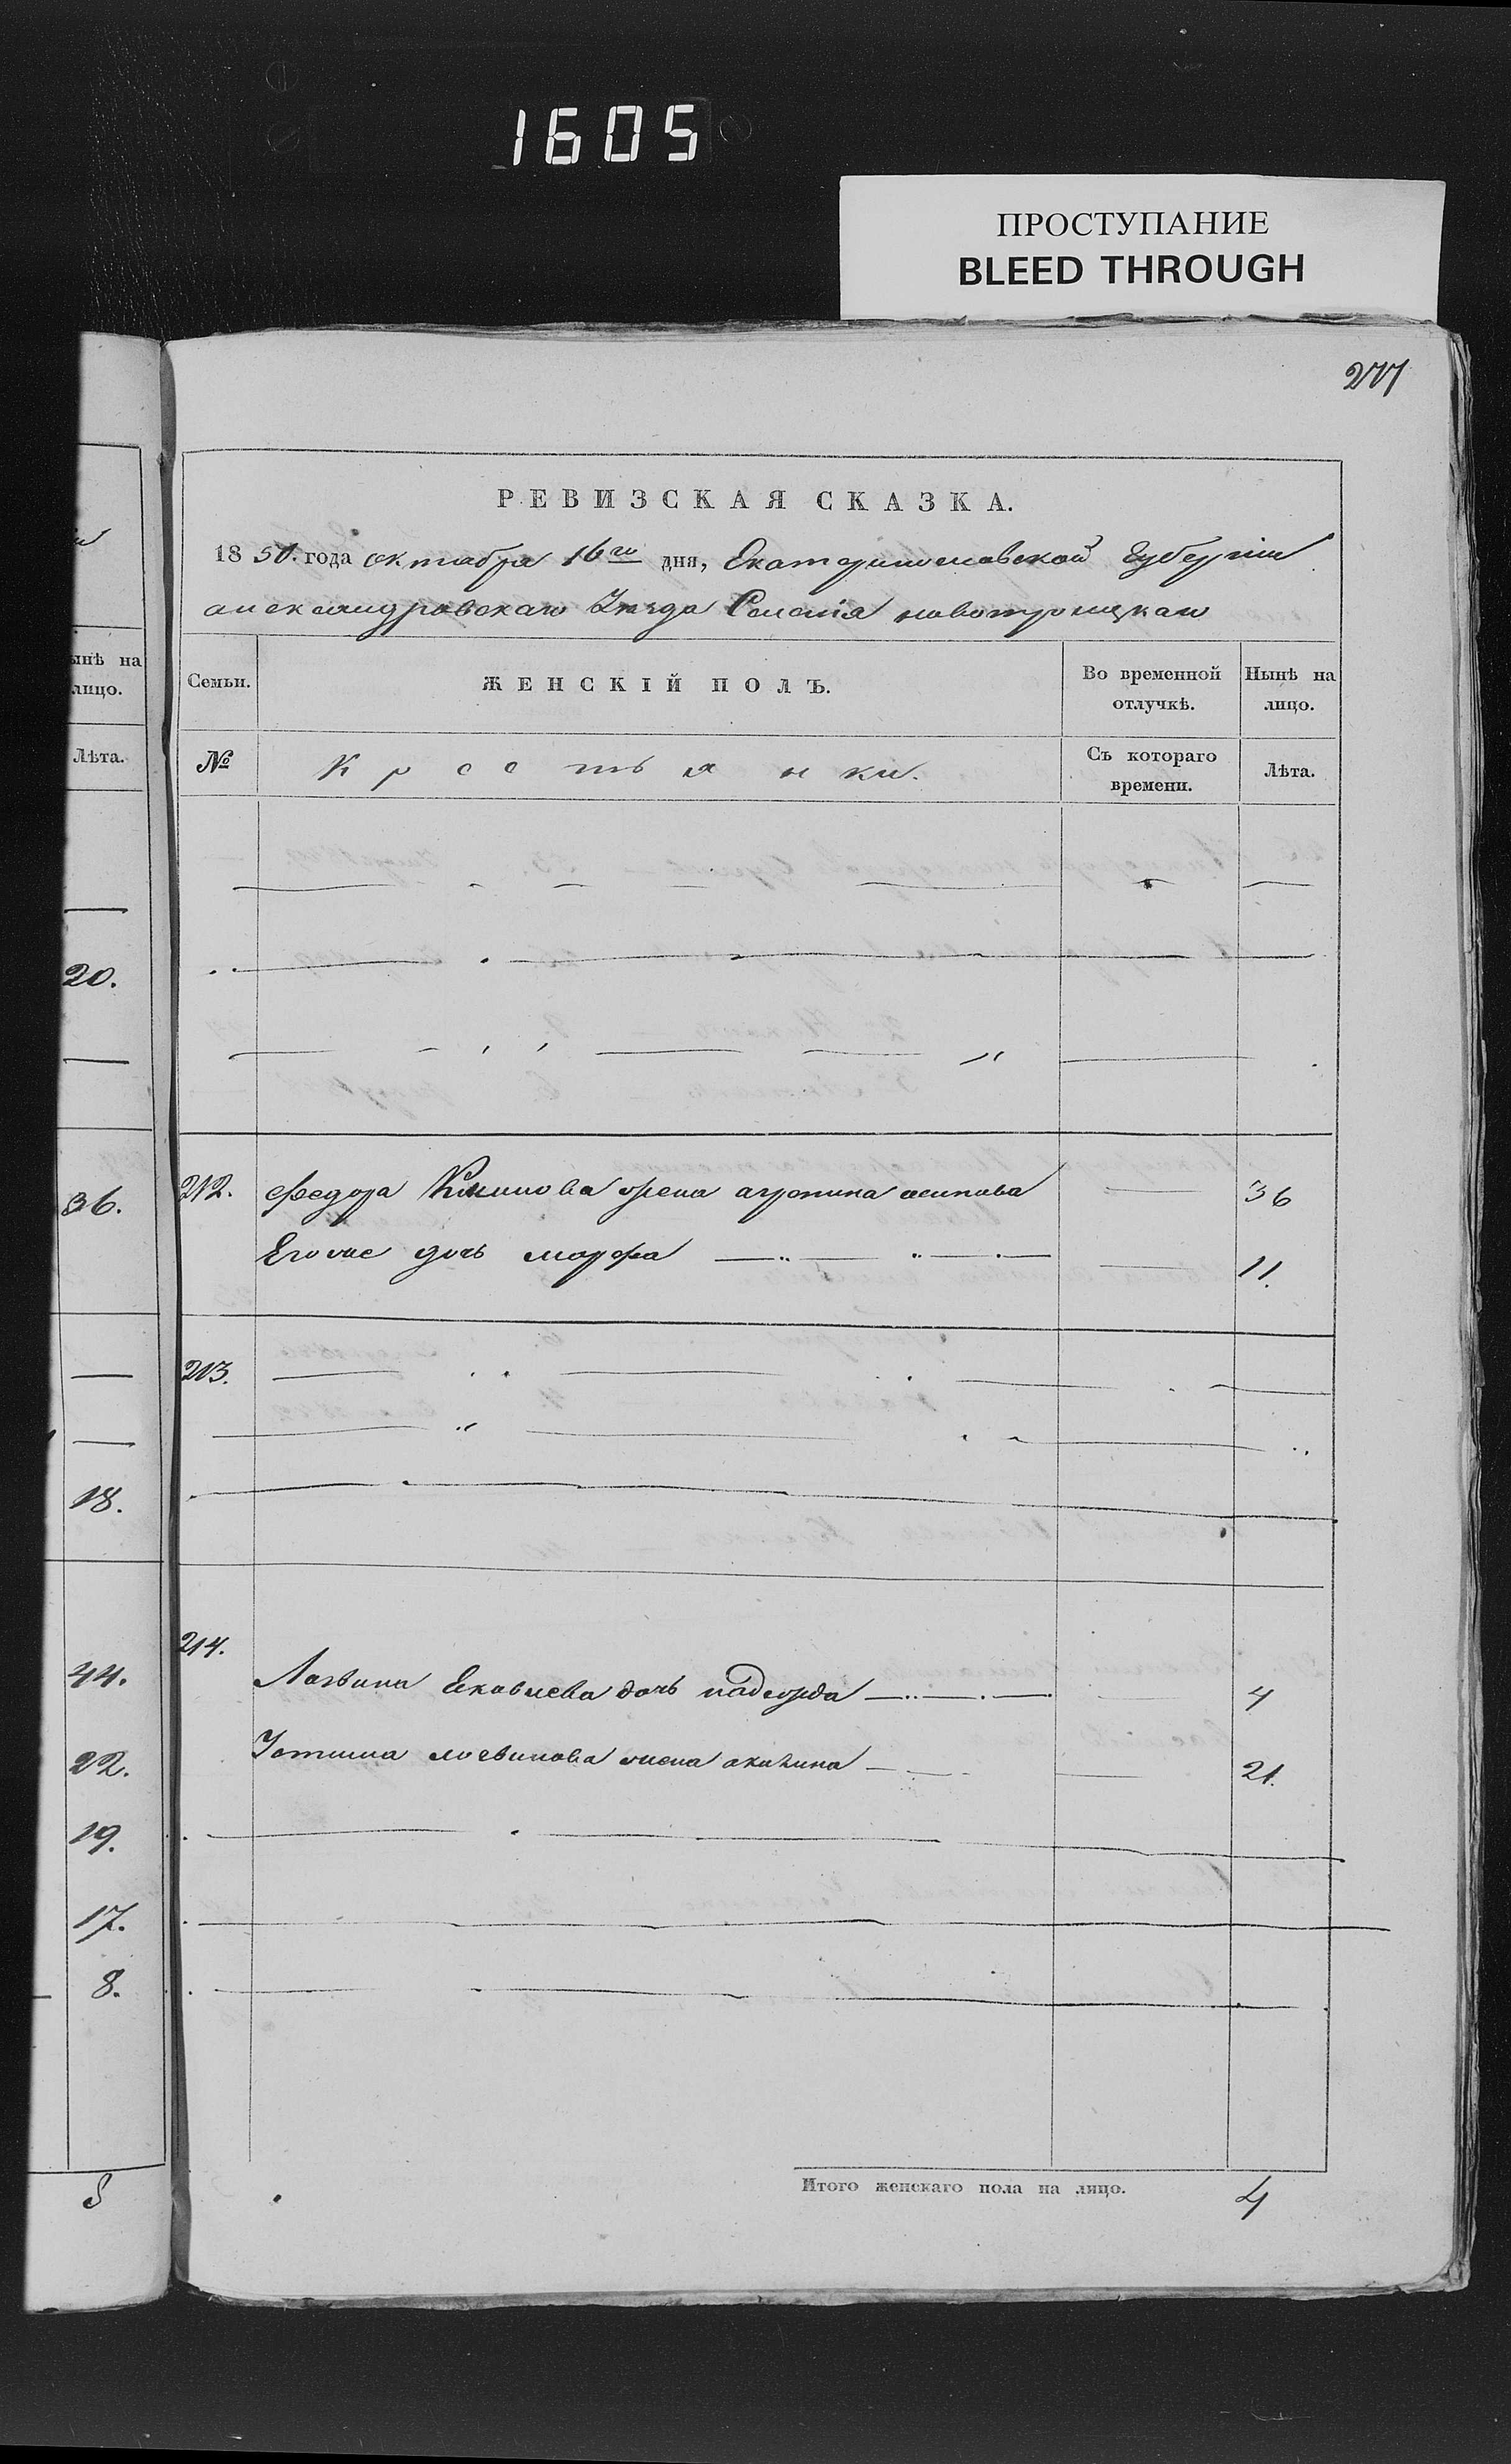 1605
ПРОСТУПАНИЕ
BLEED THROUGH
277
РЕВИЗСКАЯ СКАЗКА.
1850. года октабря 16го дня, Екатеринославской Губернiи
александровскаго Уезда Селенiя новотроицкаго
ынѣ на
лицо.
Лѣта.
20.
36.
18.
44.
22.
19.
17.
8.
Семьи.
ЖЕНСКІЙ ПОЛЪ.
Во временной
отлучкѣ.
Нынѣ на
лицо.
№
Крестьянки.
Съ котораго
времени.
Лѣта.
212. федора Климова жена агрепина осипова 36
Eговже дочь марфа 11.
213.
214.
Логвина Ековлева дочь надежда 4
Устима логвинова жена акилина 21.
Итого женскаго пола на лицо. 4